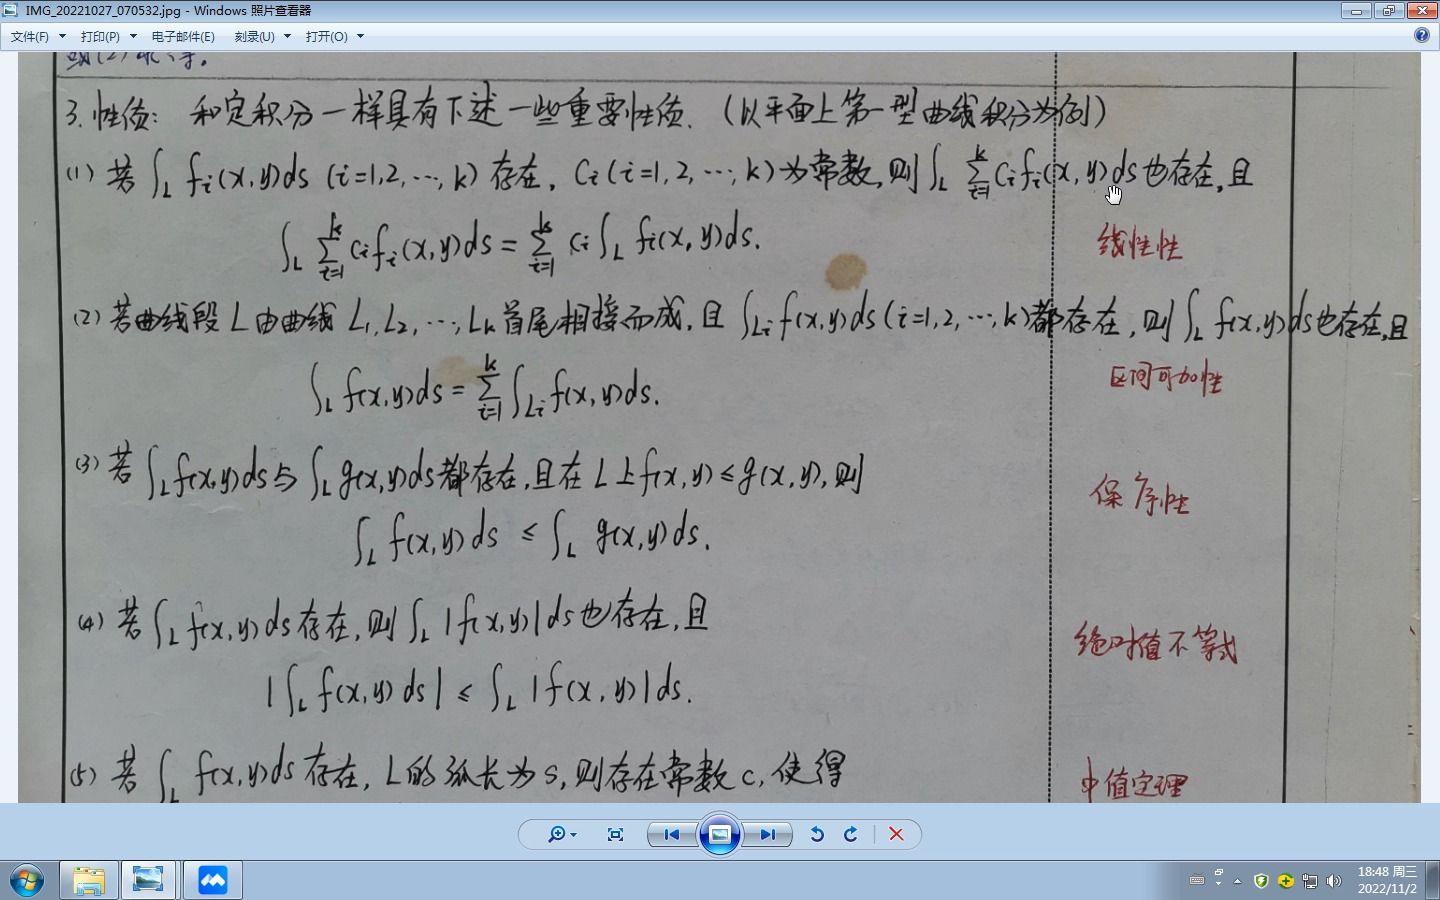 IMG_20221027_070532.jpg - Windows 照片查看器
文件(F) 打印(P) 电子邮件(E) 刻录(U) 打开(O)
3. 性质: 和定积分一样具有下述一些重要性质. (以平面上第一型曲线积分为例)
(1) 若 ∫_L f_i(x,y)ds (i=1,2,…,k) 存在, C_i (i=1,2,…,k) 为常数, 则 ∫_L ∑_{i=1}^k C_i f_i(x,y)ds 也存在, 且
∫_L ∑_{i=1}^k C_i f_i(x,y)ds = ∑_{i=1}^k C_i ∫_L f_i(x,y)ds.
线性性
(2) 若曲线段 L 由曲线 L_1, L_2, …, L_k 首尾相接而成, 且 ∫_{L_i} f(x,y)ds (i=1,2,…,k) 都存在, 则 ∫_L f(x,y)ds 也存在, 且
∫_L f(x,y)ds = ∑_{i=1}^k ∫_{L_i} f(x,y)ds.
区间可加性
(3) 若 ∫_L f(x,y)ds 与 ∫_L g(x,y)ds 都存在, 且在 L 上 f(x,y) ≤ g(x,y), 则
∫_L f(x,y)ds ≤ ∫_L g(x,y)ds.
保序性
(4) 若 ∫_L f(x,y)ds 存在, 则 ∫_L |f(x,y)|ds 也存在, 且
|∫_L f(x,y)ds| ≤ ∫_L |f(x,y)|ds.
绝对值不等式
(5) 若 ∫_L f(x,y)ds 存在, L 的弧长为 s, 则存在常数 c, 使得
中值定理
18:48 周三
2022/11/2